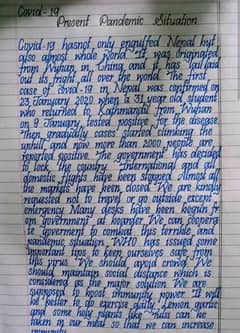 Covid-19
Present Pandemic Situation
Covid-19 hasnot only engulfed Nepal but
also almost whole world. It was originated
from Wuhan, in China and it has spread
out its fright all over the world. The first
case of covid-19 in Nepal was confirmed on
23 January 2020 when a 31 year old student
who returned to Kathmandu from Wuhan
on 9 January, tested positive for the disease.
Then gradually cases started climbing the
uphill and now more than 2000 people are
reported positive. The government has decided
to lock the country. International and all
domestic flights have been stopped. Almost all
the markets have been closed. We are kindly
requested not to travel or go outside except
emergency. Many desks have been kept
government at boarder. We can cooperate
to goverment to combat this terrible and
pandemic situation. WHO has issued some
important tips to keep ourselves safe from
this virus. We should avoid crowd. We
should maintain social distance which is
considered as the major solution. We are
supposed to boost immunity power. It will
be better to go exercise daily. Lemon, garlic
and some holy plants like can be
taken in our meal so that we can increase